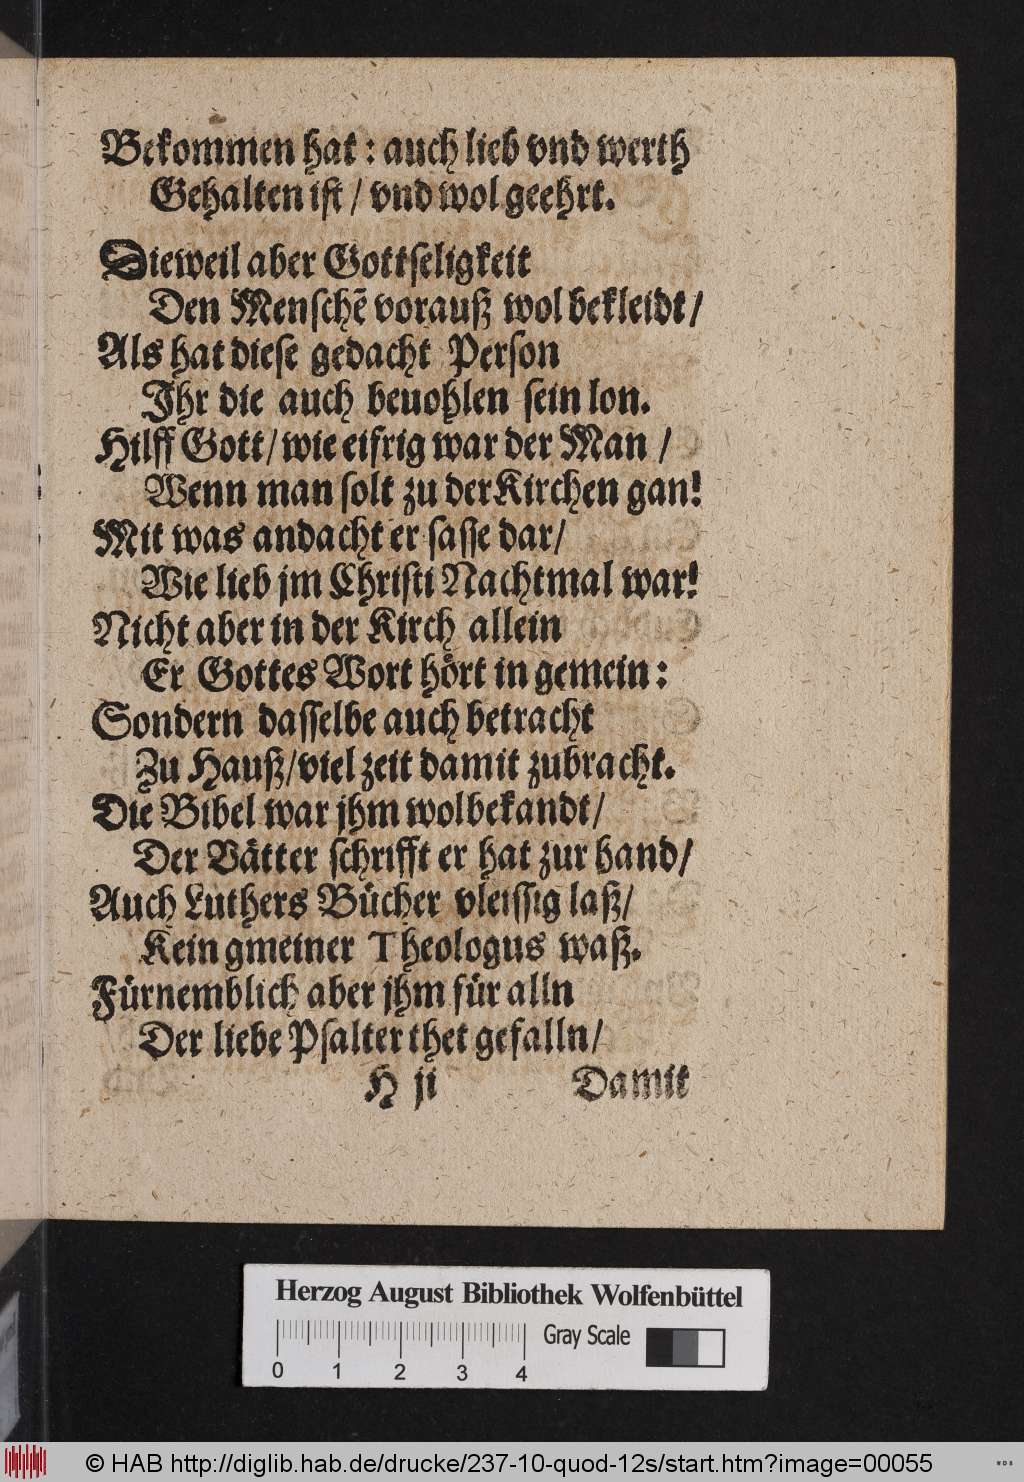 Bekommen hat : auch lieb vnd werth
Gehalten ist / vnd wol geehrt.
Dieweil aber Gottseligkeit
Den Menschẽ vorauß wol bekleidt/
Als hat diese gedacht Person
Ihr die auch beuohlen sein lon.
Hilff Gott/ wie eifrig war der Man /
Wenn man solt zu der Kirchen gan!
Mit was andacht er sasse dar/
Wie lieb jm Christi Nachtmal war!
Nicht aber in der Kirch allein
Er Gottes Wort hört in gemein :
Sondern dasselbe auch betracht
Zu Hauß/viel zeit damit zubracht.
Die Bibel war jhm wolbekandt/
Der Vätter schrifft er hat zur hand/
Auch Luthers Bücher vleissig laß/
Kein gmeiner Theologus waß.
Fürnemblich aber jhm für alln
Der liebe Psalter thet gefalln/
H ji Damit
Herzog August Bibliothek Wolfenbüttel
Gray Scale
0 1 2 3 4
© HAB http://diglib.hab.de/drucke/237-10-quod-12s/start.htm?image=00055